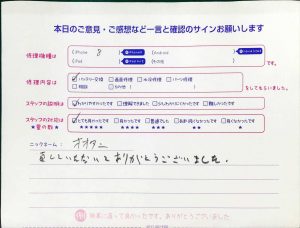 本日のご意見・ご感想など一言と確認のサインお願いします
修理機種は
iPhone 8
Android
iPad
その他
です。
修理内容は
バッテリー交換 画面修理 水没修理 パーツ修理
相談 その他
をしてもらいました。
スタッフの説明は
わかりやすかったです 理解できました 少しわかりにくかったです 難しかったです
スタッフの対応は
星の数★
とても良かったです 良かったです 普通でした あまり良くなかったです 良くなかったです
★★★★★ ★★★★ ★★★ ★★ ★
ニックネーム:
直していただいてありがとうございました。
無事に直って良かったです。ありがとうございました